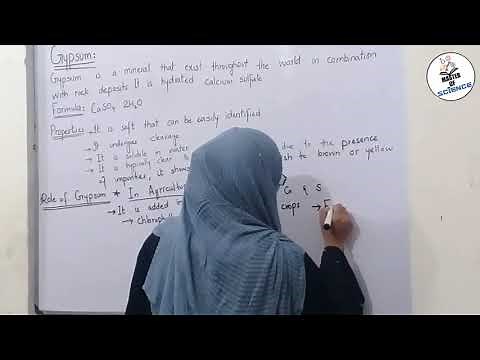 Gypsum:
Gypsum is a mineral that exist throughout the world in combination
with rock deposits It is hydrated calcium sulfate
Formula: CaSO4 2H2O
Properties → It is soft that can be easily identified
It undergoes cleavage
→ It is soluble in water
→ It is typically clear due to the presence
of impurities, it should brown or yellow
Role of Gypsum ★ In Agricultu Ca & S
→ It is added crops → F
→ chloroph
MASTER
OF
SCIENCE